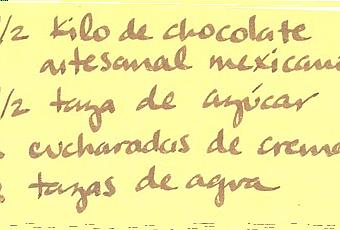 1/2 kilo de chocolate
artesanal mexicano
1/2 taza de azúcar
cucharadas de crema
tazas de agua